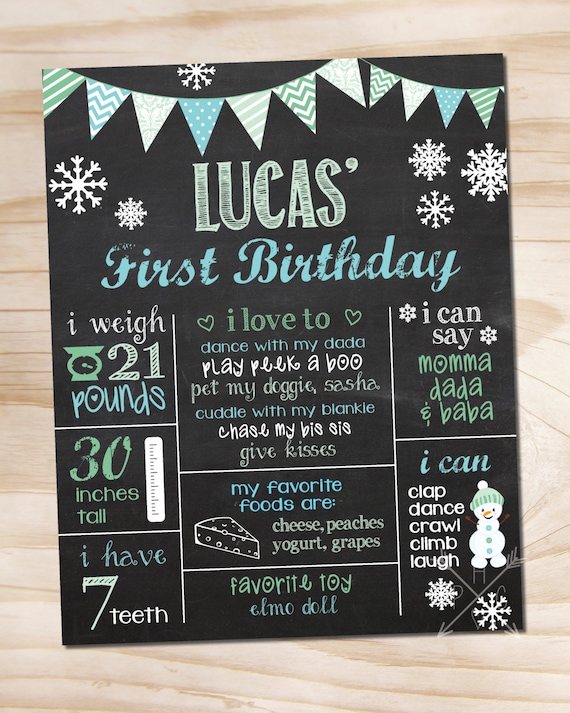 LUCAS'
First Birthday
i weigh
21
pounds
30
inches
tall
i have
7 teeth
i love to
dance with my dada
play peek a boo
pet my doggie, sasha
cuddle with my blankie
chase my bis sis
give kisses
my favorite
foods are:
cheese, peaches
yogurt, grapes
favorite toy
elmo doll
i can
say
momma
dada
& baba
i can
clap
dance
crawl
climb
laugh